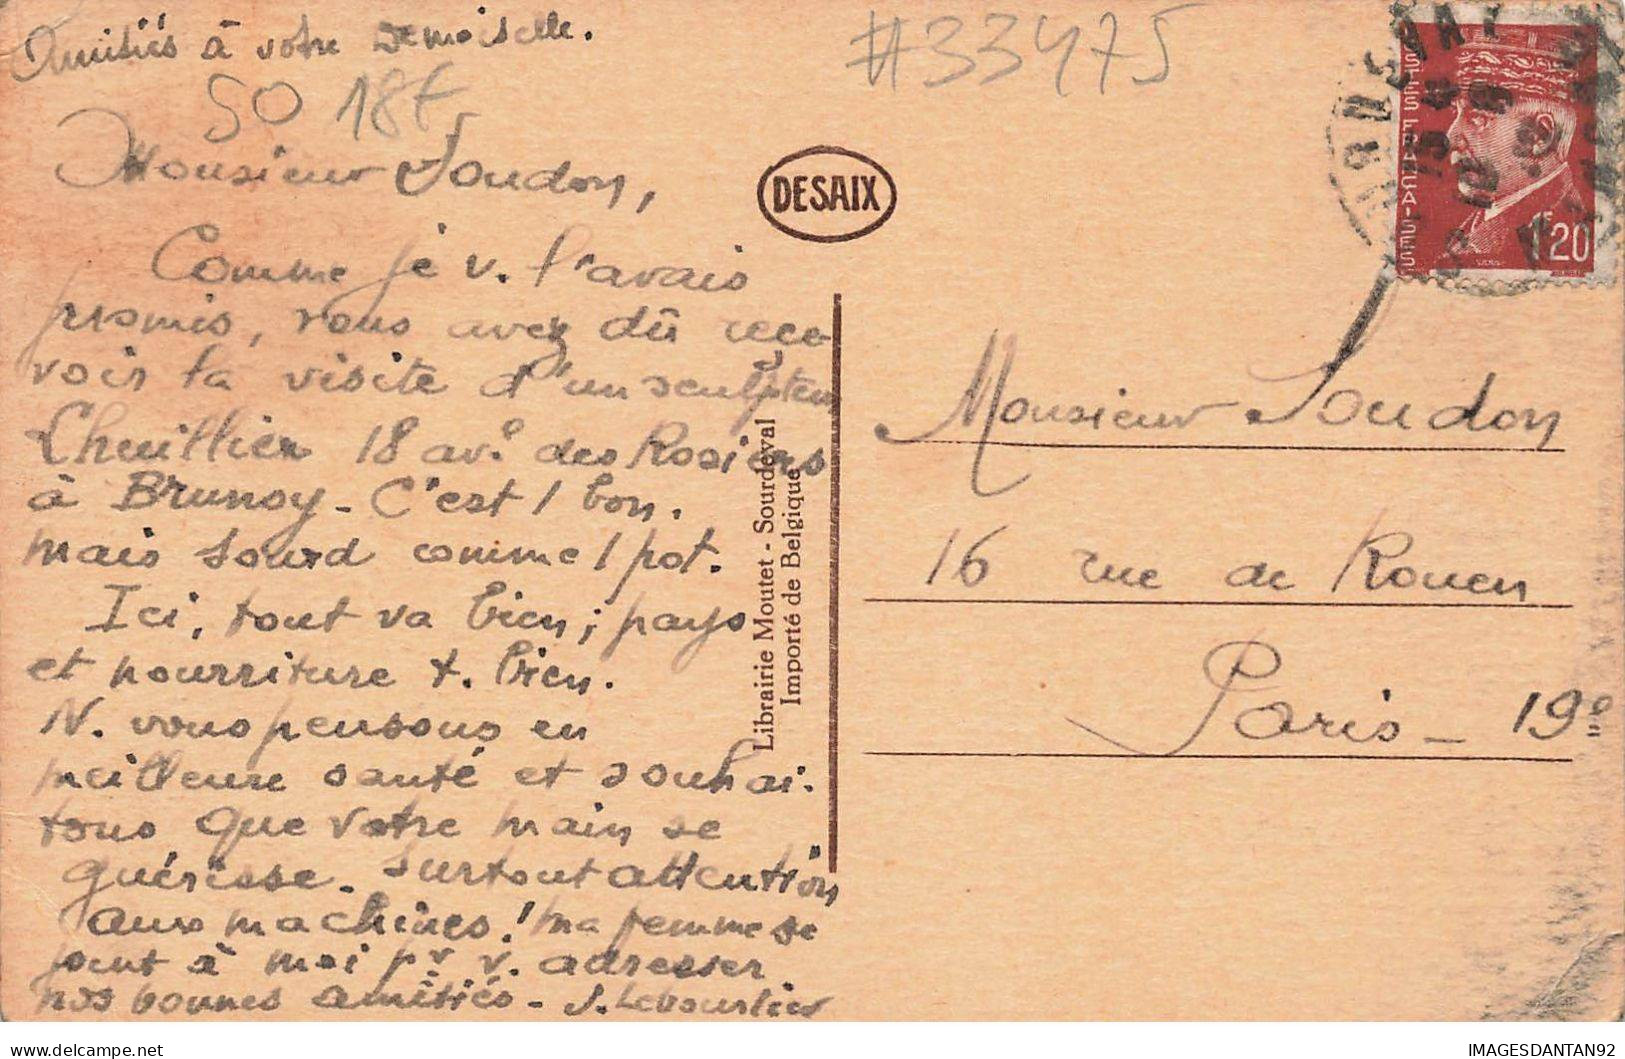 Amitiés à votre Demoiselle.
50 18E
#33475
Monsieur Soudon,
Comme je v. l'avais
promis, vous avez dû rece-
voir la visite d'un sculpteur
Lhuillier 18 av. des Rosiers
à Brunoy - C'est 1 bon.
mais sourd comme 1 pot.
Ici, tout va bien; pays
et nourriture t. bien.
N. vous pensons en
meilleure santé et souhai-
tons que votre main se
guérisse. Surtout attention
aux machines! ma femme se
joint à moi pr v. adresser
nos bonnes amitiés - J. Lebourlier
DESAIX
Librairie Moutet - Sourdeval
Importé de Belgique
POSTES FRANÇAISES
1F20
Monsieur Soudon
16 rue de Rouen
Paris - 19e
IMAGESDANTAN92